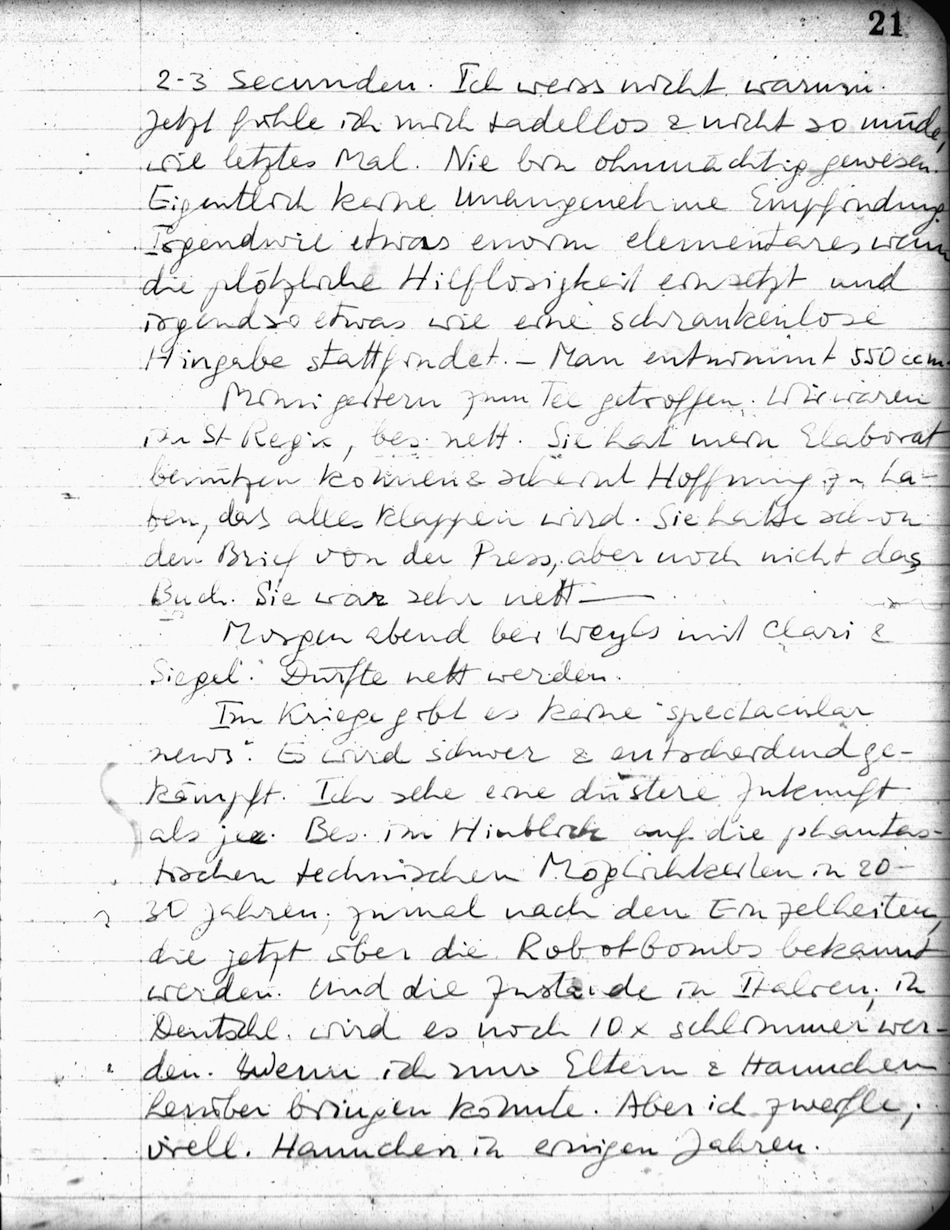 21
2-3 Secunden. Ich weiss nicht warum.
Jetzt fühle ich mich tadellos & nicht so müde,
wie letztes Mal. Nie bin ohnmächtig gewesen.
Eigentlich keine unangenehme Empfindung.
Irgendwie etwas enorm elementares wenn
die plötzliche Hilflosigkeit einsetzt und
irgendso etwas wie eine schrankenlose
Hingabe stattfindet. – Man entnimmt 550 ccm.
gestern zum Tee getroffen. Wir waren
im St Regis, bes. nett. Sie hat mein Elaborat
benutzen können & scheint Hoffnung zu ha-
ben, das alles klappen wird. Sie hatte schon
den Brief von der Press, aber noch nicht das
Buch. Sie war sehr nett —
Morgen abend bei Weyls mit Clari &
Siegel. Dürfte nett werden.
Im Kriege gibt es keine "spectacular
news". Es wird schwer & entscheidend ge-
kämpft. Ich sehe eine düstere Zukunft
als je. Bes. im Hinblick auf die phantas-
tischen technischen Möglichkeiten in 20-
30 Jahren, zumal nach den Einzelheiten,
die jetzt über die Robotbombs bekannt
werden. Und die Zustände in Italien, in
Deutschl. wird es noch 10 x schlimmer wer-
den. Wenn ich nur Eltern & Hannchen
herüber bringen könnte. Aber ich zweifle,
viell. Hannchen in einigen Jahren.